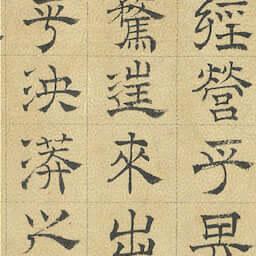 經營乎其
騖往來出
乎泱漭之